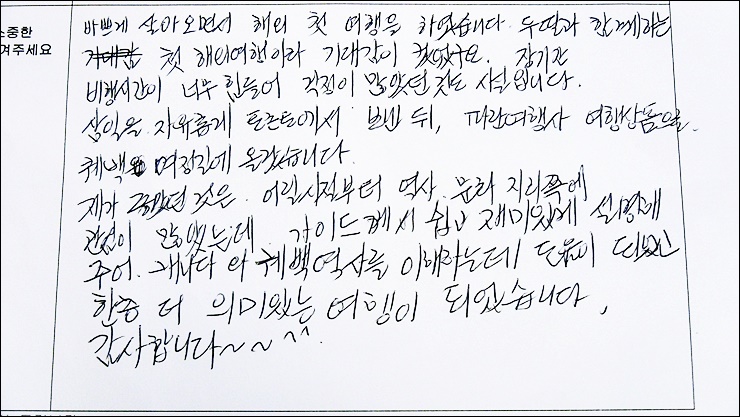 소중한
겨주세요
바쁘게 살아오면서 해외 첫 여행을 하였습니다. 두딸과 함께하는
첫 해외여행이라 기대감이 컸었구요. 장기간
비행시간이 너무 힘들어 걱정이 많았던 것도 사실입니다.
삼일을 자유롭게 토론토에서 보낸 뒤, 파란여행사 여행상품으로
퀘백 여정길에 올랐습니다.
제가 것은. 어릴시절부터 역사. 문화 지리쪽에
관심이 많았는데. 가이드께서 쉽고 재미있게 설명해
주어. 캐나다와 퀘백역사를 이해하는데 도움이
한층 더 의미있는 여행이 되었습니다,
감사합니다~~^^.